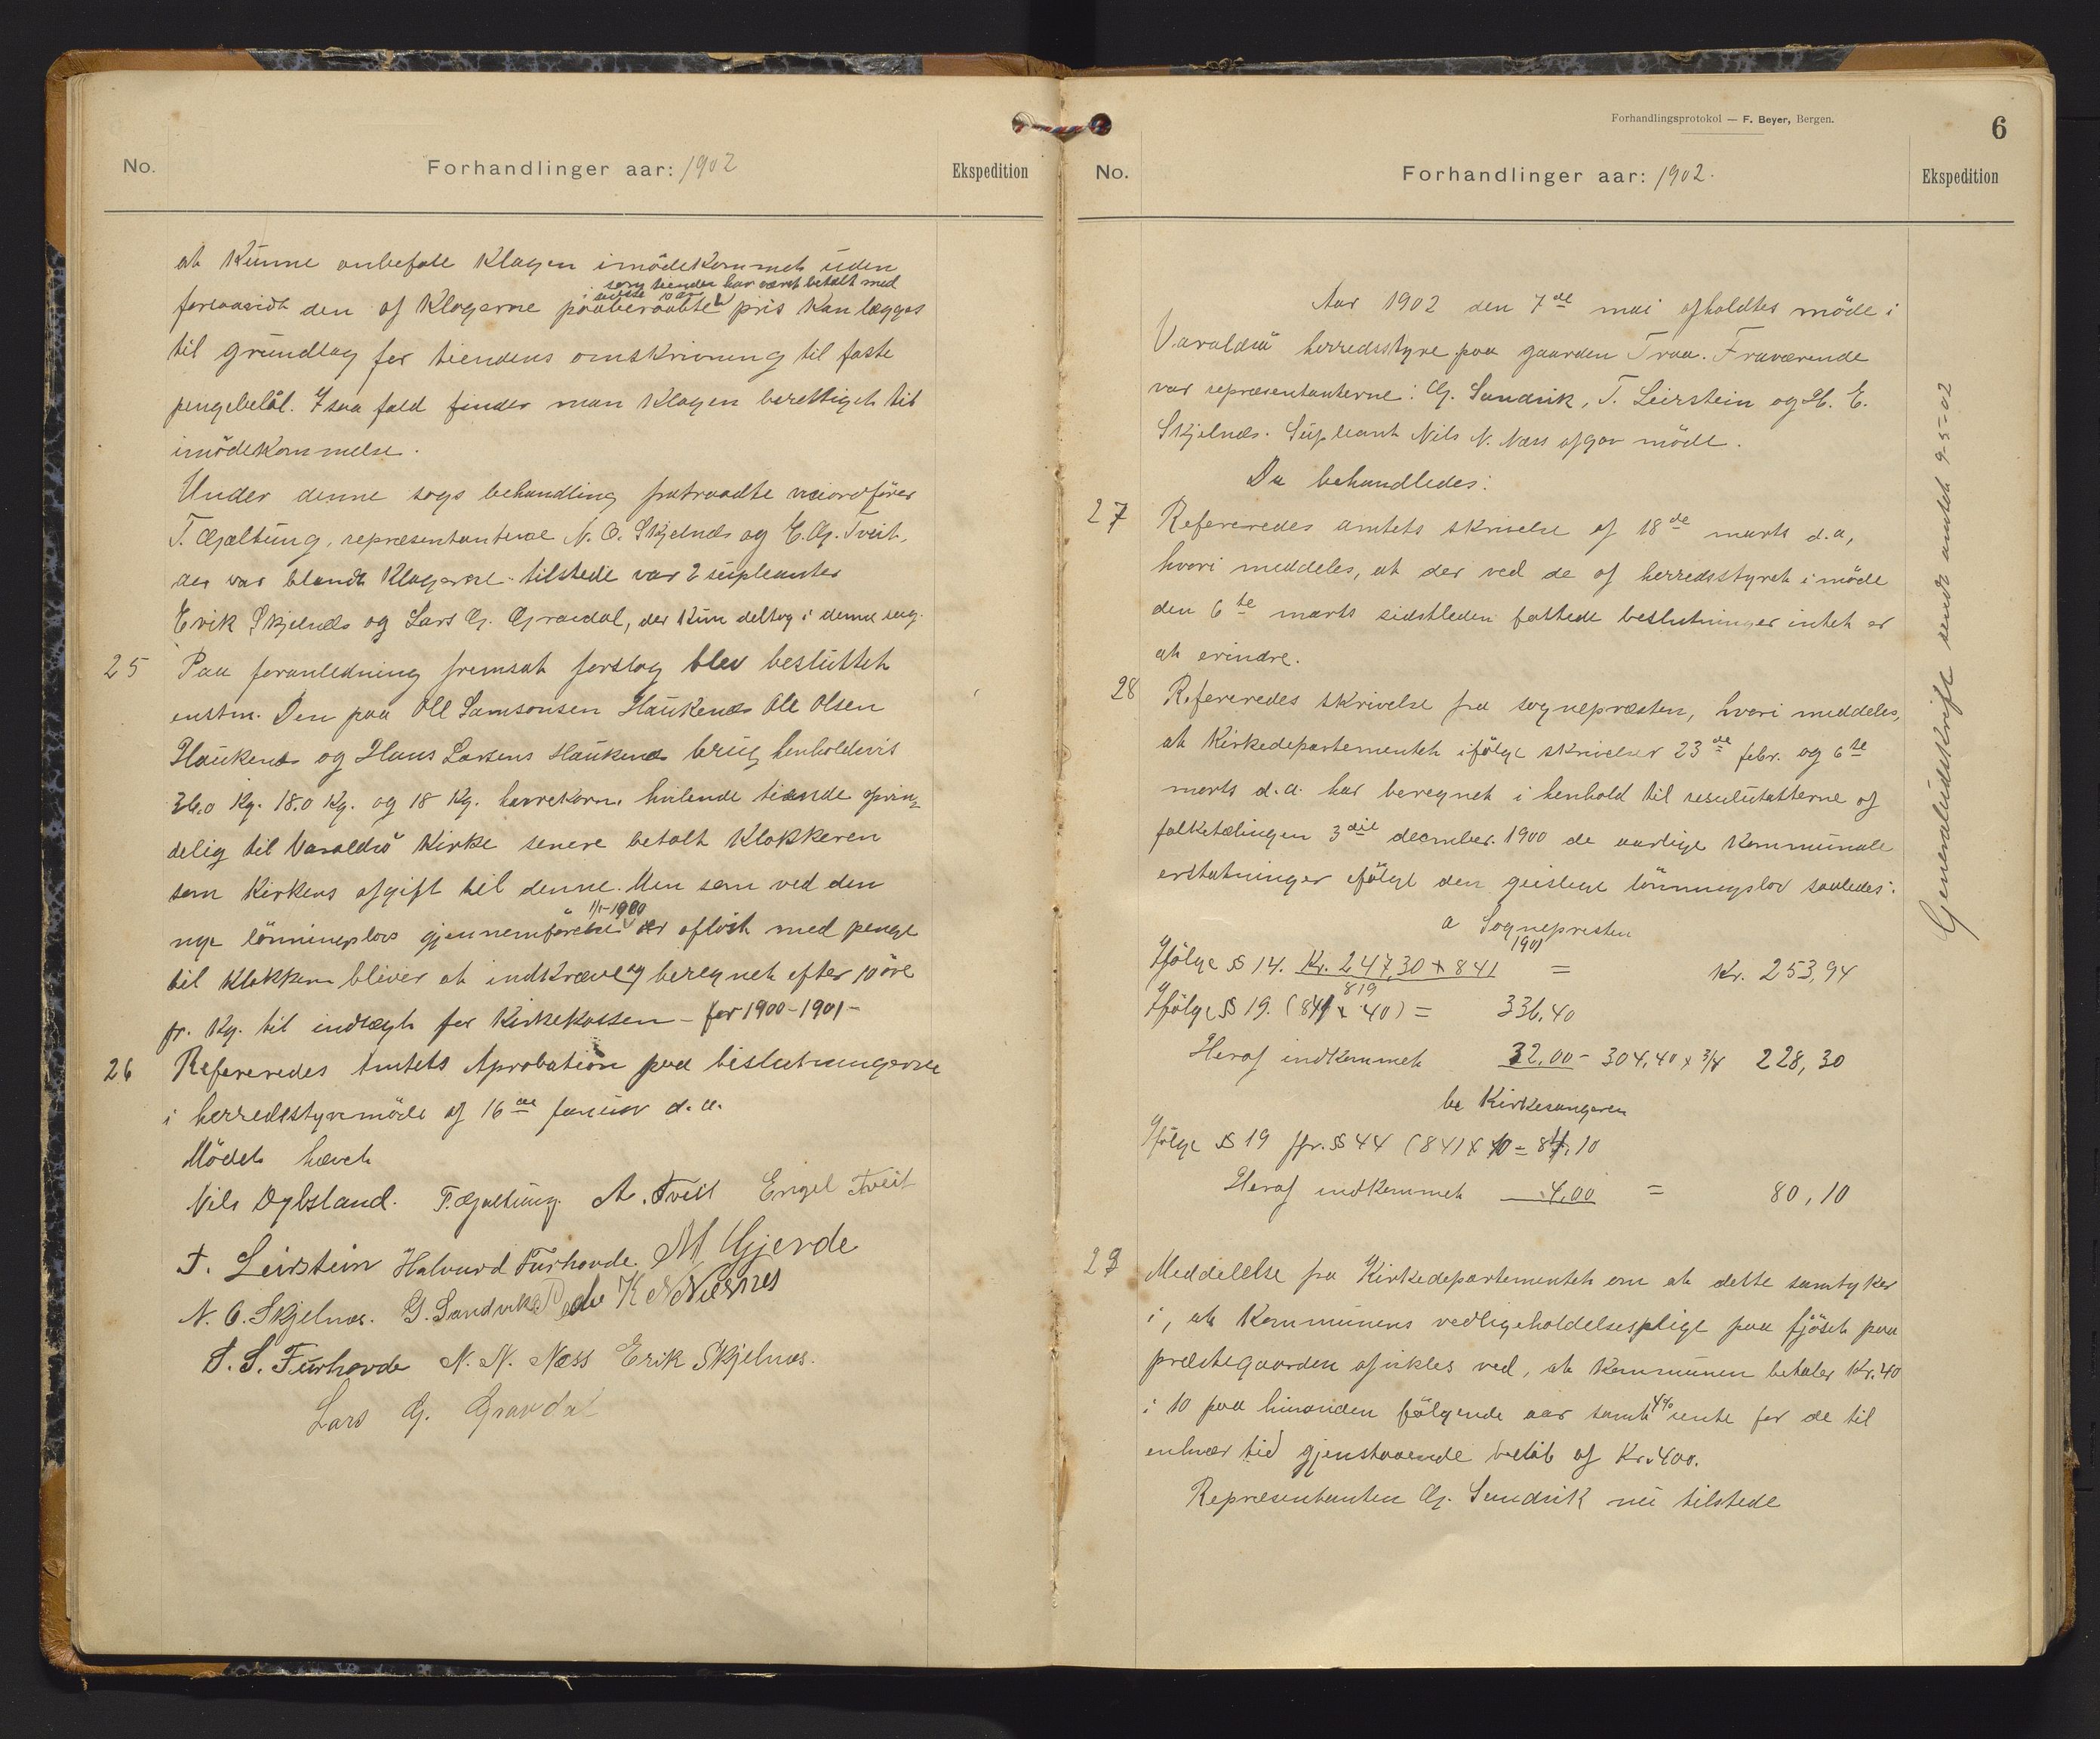 No.
Forhandlinger aar: 1902
Ekspedition
at kunne anbefale Klagen imödekommet uden
som tienden har været betalt med
i sidste 10 aar
forsaavidt den af Klagerne paaberaabte pris kan lægges
til grundlag for tiendens omskrivning til faste
pengebelöl. I saa fald finder man Klagen berettiget til
imödekommelse.
Under denne sags behandling fratraadte viceordförer
T. Gjæltung, repræsentanterne N. O. Skjelnæs og E. G. Tveit,
der var blandt Klagerne. tilstede var 2 supleanter
Erik Skjelnæs og Lars G. Gravdal, der kun deltog i denne sag.
25
Paa foranledning fremsat forslag blev besluttet
enstm. Den paa Ole Samsonsen Haukenæs Ole Olsen
Haukenæs og Hans Larsens Haukenæs brug henholdsvis
36,0 Kg. 18,0 Kg. og 18 Kg. havrekorn hvilende tiende oprin,
delig til Varaldsö Kirke senere betalt Klokkeren
som Kirkens afgift til denne. Men som ved den
1/1-1900
nye lönningslovs gjennemförelse er aflöst med penge
til Klokkern bliver at indkræve og beregnet efter 10 öre
pr. Kg. til indtægt for Kirkekassen - for 1900-1901-
26
Refereredes Amtets Aprobation paa beslutningerne
i herredsstyremöde af 16de januar d.a.
Mödet hævet
Nils Dybsland. T. Gjæltung. A. Tveit Engel Tveit
T. Leirstein Halvard Furhovde. M Gjerde
N. O. Skjelnæs. G. Sandvik Peder K N Næsnes
S. S. Furhovde N. N. Næss Erik Skjelnæs.
Lars G. Gravdal
Forhandlingsprotokol — F. Beyer, Bergen.
6
No.
Forhandlinger aar: 1902.
Ekspedition
Aar 1902 den 7de mai afholdtes möde i
Varaldsö herredsstyre paa gaarden Traa. Fraværende
var repræsentanterne: G. Sandvik, T. Leirstein og H. E.
Skjelnæs. Supleant Nils N. Næss afgav möde.
Da behandledes:
27
Refereredes amtets skrivelse af 18de marts d.a,
hvori meddeles, at der ved de af herredsstyret i möde
den 6te marts sidstleden fattede beslutninger intet er
at erindre.
28
Refereredes skrivelse fra sognepræsten, hvori meddeles,
at Kirkedepartementet ifölge skrivelser 23de febr. og 6te
marts d.a. har beregnet i henhold til resulutatterne af
folketælingen 3die december. 1900 de aarlige kommunale
erstatninger ifölge den geislige lönningslov saaledes:
a Sognepresten
1901
Ifölge § 14. Kr. 247,30 x 841 = Kr. 253,94
819
Ifölge § 19. (841 x 40) = 336,40
Heraf indkommet 32,00 - 304,40 x 3/4 228,30
be Kirkesangeren
Ifölge § 19 jfr. § 44 (841 x 10 = 84,10
Heraf indkommet 4,00 = 80,10
29
Meddelelse fra Kirkedepartementet om at dette samtyker
i, at Kommunens vedligeholdelsesplige paa fjöset paa
præstegaarden afvikles ved, at Kommunen betaler Kr. 40
i 10 paa hinanden fölgende aar samt 4% rente for de til
enhver tid gjenstaaende belöb af Kr. 400.
Repræsentanten G. Sandvik nu tilstede
Generaludskrift sendt amtet 9-5-02